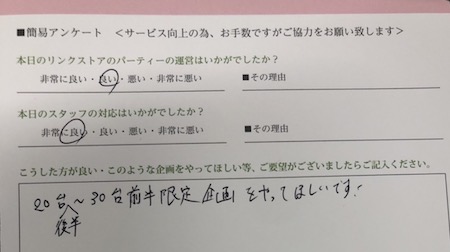 ■簡易アンケート <サービス向上の為、お手数ですがご協力をお願い致します>
本日のリンクストアのパーティーの運営はいかがでしたか?
非常に良い・良い・悪い・非常に悪い ■その理由
本日のスタッフの対応はいかがでしたか?
非常に良い・良い・悪い・非常に悪い ■その理由
こうした方が良い・このような企画をやってほしい等、ご要望がございましたらご記入ください。
20台~30台前半限定企画をやってほしいです!
後半